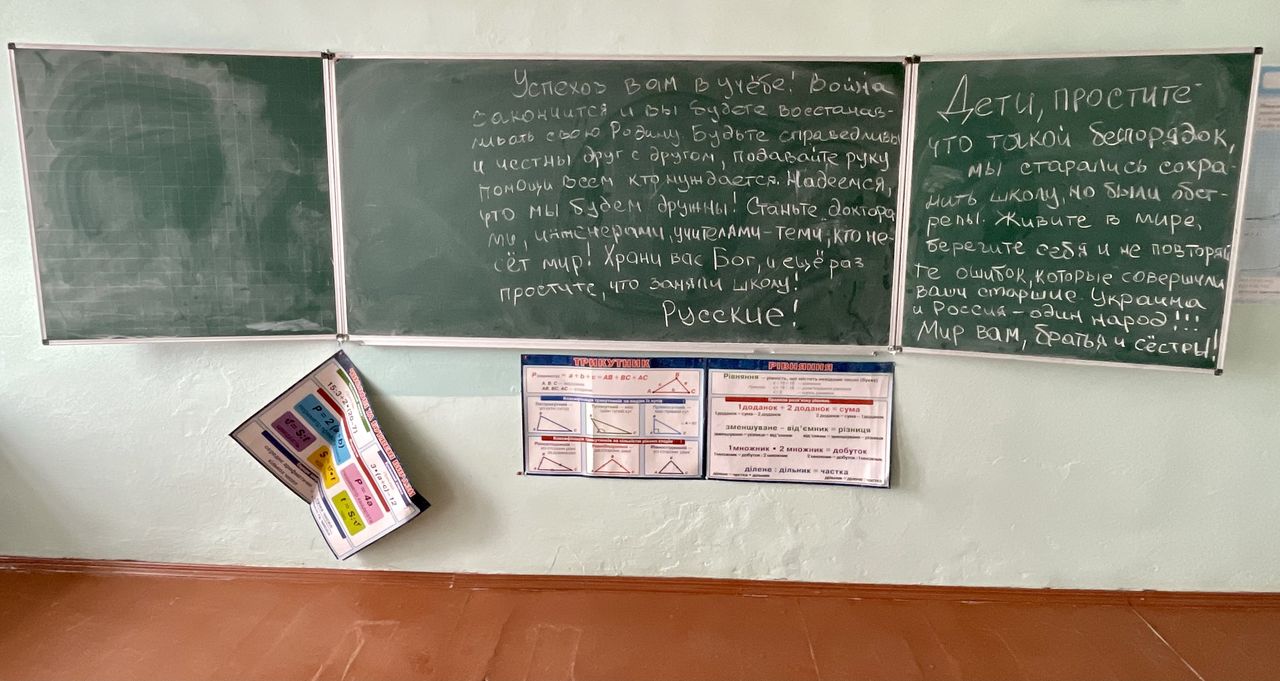 Успехов вам в учёбе! Война
закончится и вы будете восстанав-
ливать свою Родину. Будьте справедливы
и честны друг с другом, подавайте руку
помощи всем кто нуждается. Надеемся,
что мы будем дружны! Станьте доктора-
ми, инженерами, учителями - теми, кто не-
сёт мир! Храни вас Бог, и ещё раз
простите, что заняли школу!
Русские!
Дети, простите
что такой беспорядок,
мы старались сохра-
нить школу, но были обст-
релы. Живите в мире,
берегите себя и не повторяй
те ошибок, которые совершили
ваши старшие Украина
и Россия - один народ!!!
Мир вам, братья и сёстры!
15:0,(2•100-71)
3•(a+c)-12
P = 4a
t = S:v
ТРИКУТНИК
= a + b + c = AB + BC + AC
РІВНЯННЯ
Рівняння — рівність, що містить невідоме число (букву)
1доданок + 2 доданок = сума
1доданок = сума - 2 доданок
2 доданок = сума - 1доданок
зменшуване - від'ємник = різниця
1множник • 2 множник = добуток
1множник = добуток : 2 множник
2 множник = добуток : 1множник
ділене : дільник = частка